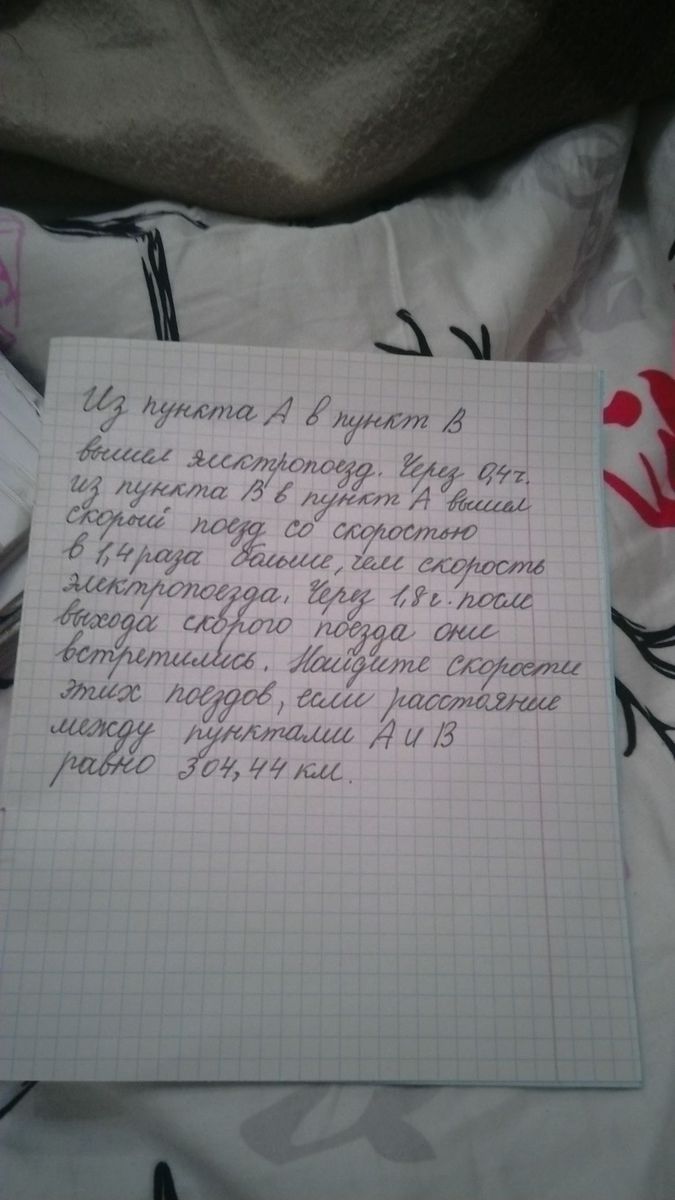 Из пункта А в пункт В
вышел электропоезд. Через 0,4ч.
из пункта В в пункт А вышел
скорый поезд со скоростью
в 1,4 раза больше, чем скорость
электропоезда. Через 1,8 ч. после
выхода скорого поезда они
встретились. Найдите скорости
этих поездов, если расстояние
между пунктами А и В
равно 304,44 км.